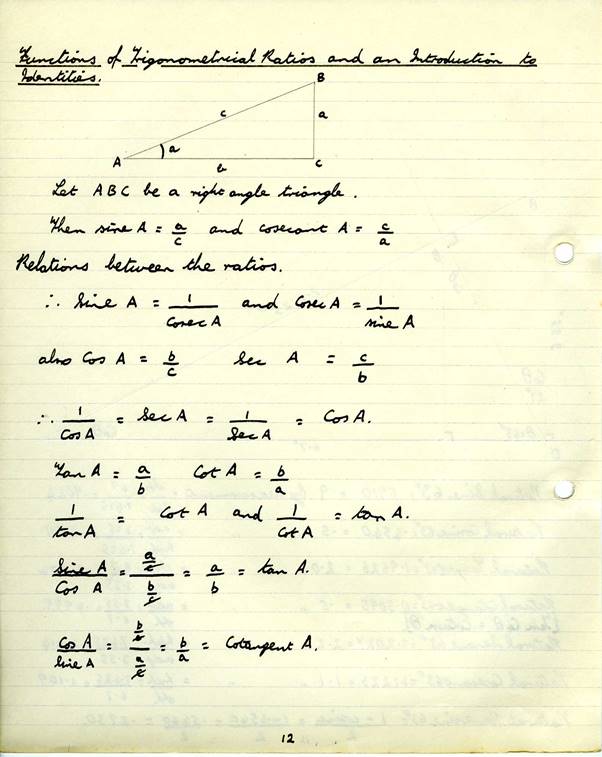 Functions of Trigonometrical Ratios and an Introduction to
Identities.
B
c
a
A
a
b
C
Let ABC be a right angle triangle.
Then sine A = a/c and cosecant A = c/a
Relations between the ratios.
∴ Sine A = 1/Cosec A and Cosec A = 1/sine A
also Cos A = b/c Sec A = c/b
∴ 1/Cos A = Sec A = 1/Sec A = Cos A.
Tan A = a/b Cot A = b/a
1/tan A = Cot A and 1/Cot A = tan A.
Sine A/Cos A = (a/c)/(b/c) = a/b = tan A.
Cos A/Sine A = (b/c)/(a/c) = b/a = Cotangent A.
12